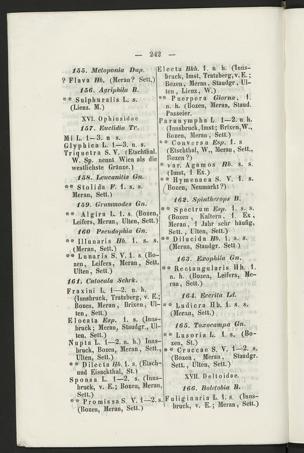 — 242 —
155. Metoponia Dup.
? Flava Hb. (Meran? Sett.)
156. Agriphila B.
** Sulphuralis L. s.
(Lienz. M.)
XVI. Ophiusidae
157. Euclidia Tr.
Mi L. 1—3. n. s.
Glyphica L. 1—3. n.
Triquetra S. V. (Etschthal,
W. Sp. nennt Wien als die
westlichste Gränze.)
158. Leucanitis Gn.
** Stolida F. 1. s. s.
Meran, Sett.)
159. Grammodes Gn.
** Algira L. 1. s. (Bozen,
Leifers, Meran, Ulten, Sett.)
160 Pseudophia Gn.
** Illunaris Hb. 1. s. s.
(Meran, Sett.)
** Lunaris S. V. 1. s. (Bo-
zen, Leifers, Meran, Sett.
Ulten, Sett.)
161. Catocala Schrk.
Fraxini L. 1—2. n. h.
(Innsbruck, Tratzberg, v. E.;
Bozen, Meran, Brixen, Ul-
ten, Sett.)
Elocata Esp. 1. s. (Inns-
bruck; Meran, Staudgr., Ul-
ten, Sett.)
Nupta L. 1—2. n. h.) Inns-
bruck, Bozen, Meran, Sett.,
Ulten, Sett.)
** Dilecta Hb. 1. s. (Etsch-
und Eisackthal, St.)
Sponsa L. 1—2. s. (Inns-
bruck, v. E.; Bozen, Meran,
Sett.)
** Promissa S. V. 1—2. s.
(Bozen, Meran, Sett.)
Electa Bkh. 1. n. h. (Inns-
bruck, Imst, Tratzberg, v. E.;
Bozen, Meran, Staudgr., Ul-
ten, Lienz, W.)
** Puerpera Giorne. 1.
n. h. (Bozen, Meran, Staud.
Passeier.
Paranympha L. 1—2. n. h.
(Innsbruck, Imst; Brixen, W.,
Bozen, Meran, Sett.)
** Conversa Esp. 1. s
(Etschthal, W., Meran, Sett.,
Bozen?)
** var. Agamos Hb. s. s.
(Imst, 1 Ex.)
** Hymenaea S. V. 1. s.
(Bozen, Neumarkt?)
162. Spintherops B.
** Spectrum Esp. 1. s. s.
(Bozen, Kaltern, 1 Ex.,
Meran, 1 Jahr sehr häufig,
Sett., Ulten, Sett.)
** Dilucida Hb. 1. s. s.
(Meran, Staudgr. Sett.)
163. Exophila Gn.
** Rectangularis Hb. 1.
n. h. (Bozen, Leifers, Me-
ran, Sett.)
164. Eccrita Ld.
** Ludicra Hb. 1. s. s.
(Meran, Sett.)
165. Toxocampa Gn.
** Lusoria L. 1. s. (Bo-
zen, St.)
** Craccae S. V. 1—2. s.
(Bozen, Meran, Staudgr.
Sett., Ulten, Sett.)
XVII. Deltoidae.
166. Boletobia B.
Fuliginaria L. 1. s. (Inns-
bruck, v. E.; Meran, Sett.)